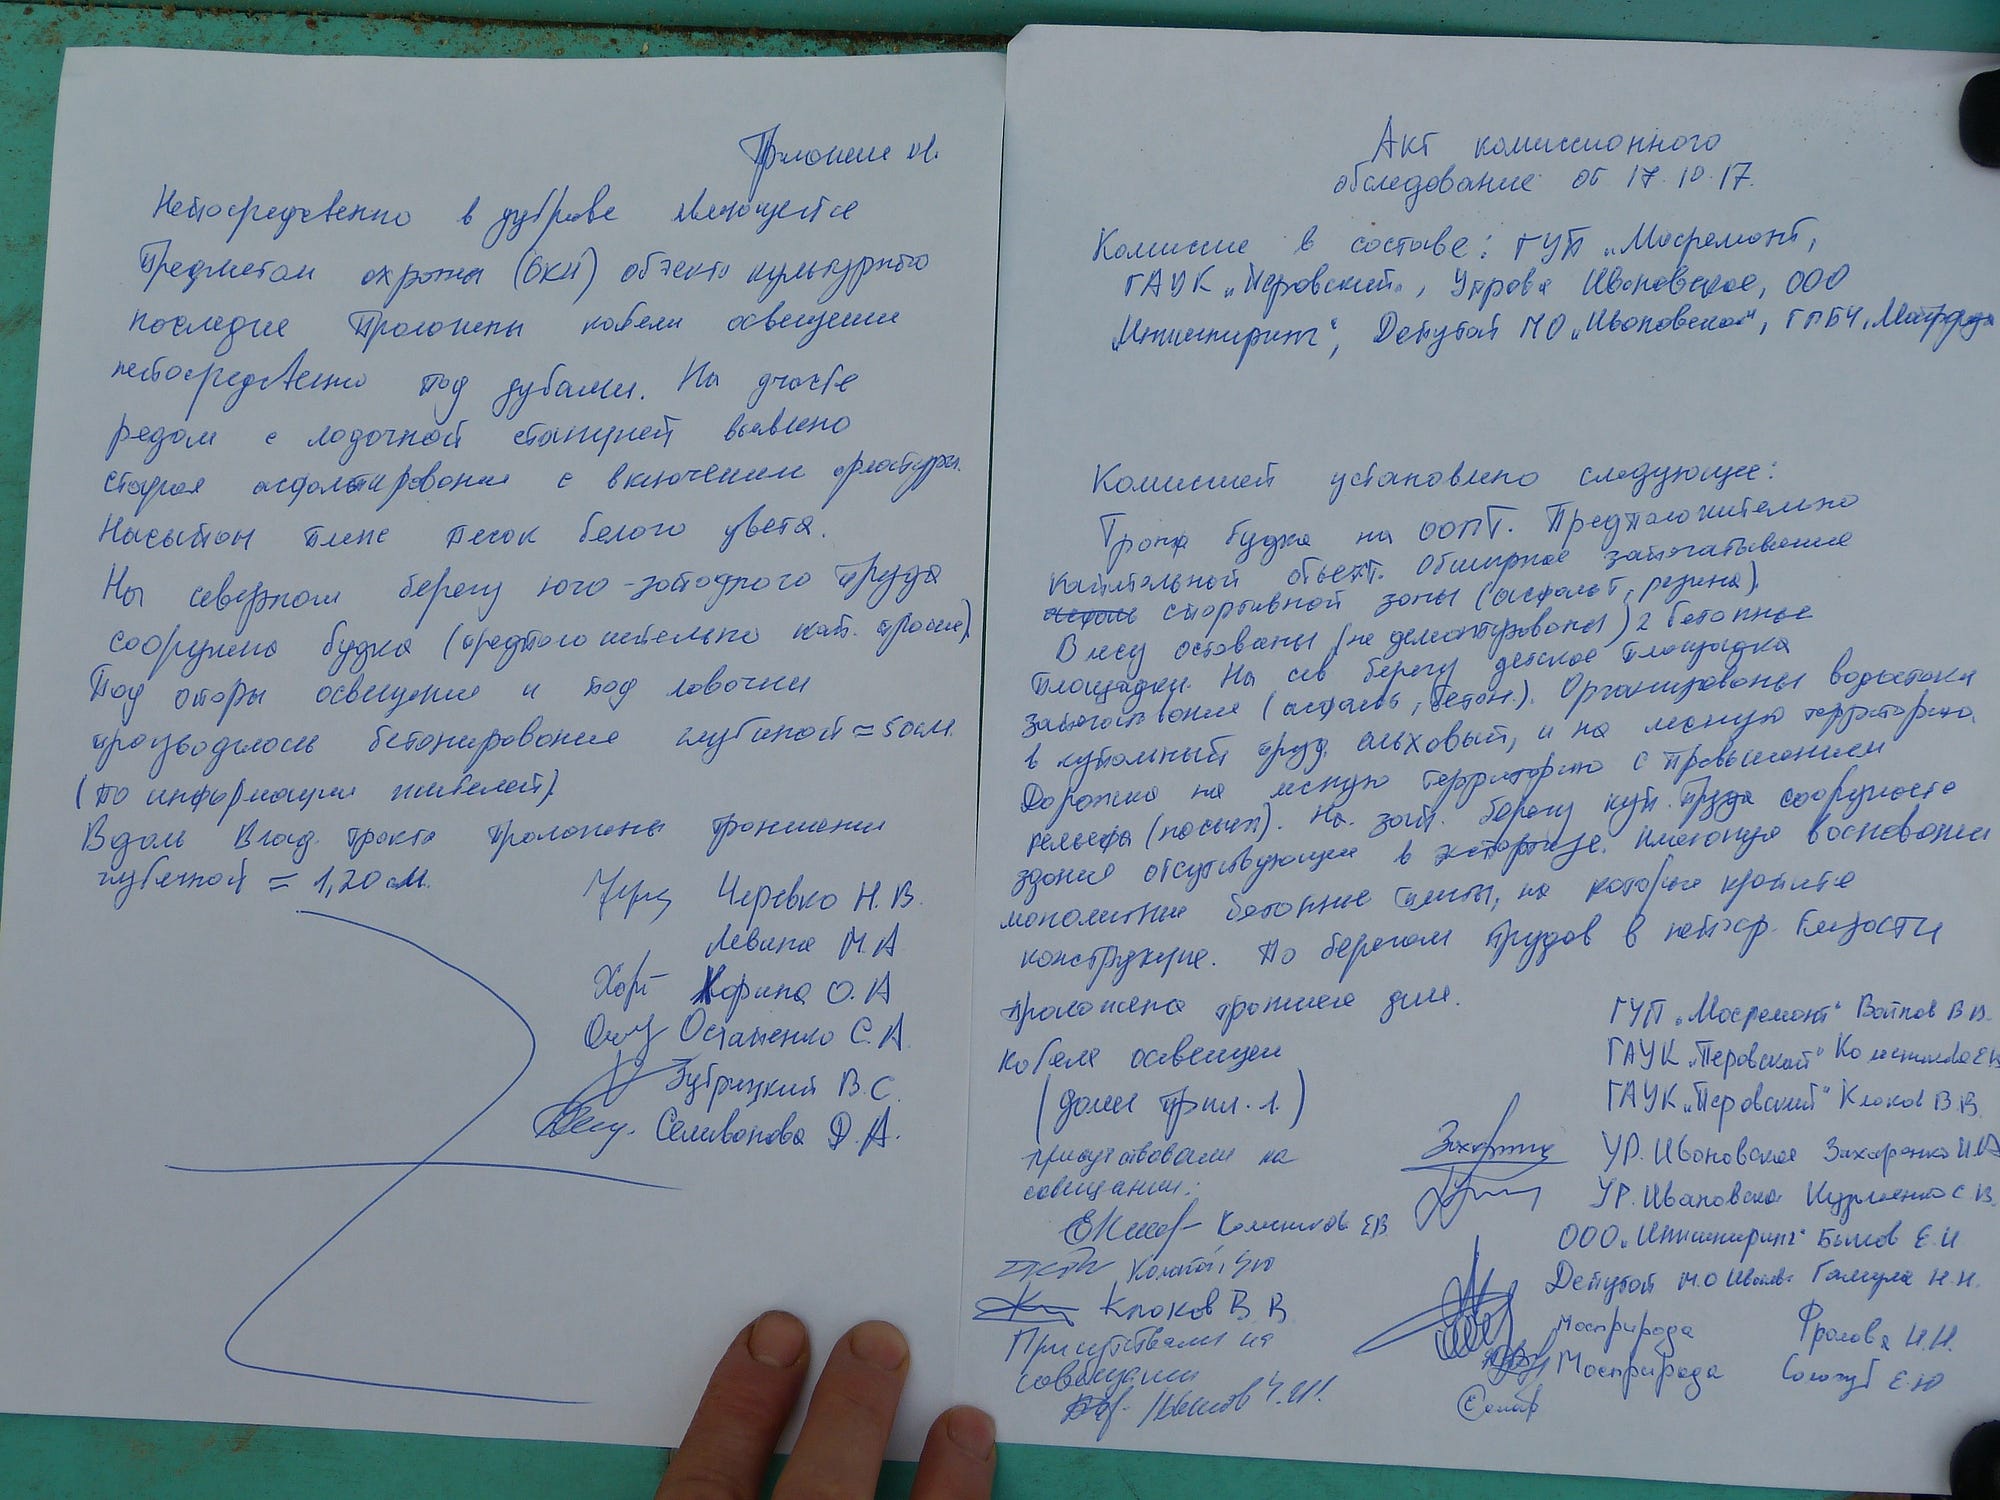 Приложение №1.
Непосредственно в дуброве являющейся
предметом охраны (ОКН) объекта культурного
последие проложены кабели освещение
непосредственно под дубами. На участке
рядом с лодочной станцией выявлено
старое асфальтирование с включением арматуры.
Насыпан пляж песок белого цвета.
На северном берегу юго-западного пруда
сооружена будка (предположительно кап. строен.)
Под опоры освещение и под лавочки
производилось бетонирование глубиной ≈ 50 см.
(по информации жителей).
Вдоль Влад. тракта проложены траншеи
глубиной = 1,20 см.
Черевко Н.В.
Левина М.А
Хорина О.А
Остапенко С.А.
Зубрицкий В.С.
Селиванова Д.А.
Акт комиссионного
обследование от 17.10.17.
Комиссия в составе: ГУП „Мосремонт",
ГАУК „Перовский", Управа Ивановское, ООО
„Инжиниринг", Депутат МО „Ивановское", ГПБУ „Мосприрода
Комиссией установлено следующее:
будка на ООПТ. Предположительно
капитальный объект. Обширное запечатывание
спортивной зоны (асфальт, резина).
В лесу оставаны (не демонтированы) 2 бетонные
площадки. На сев берегу детское площадка
запечатывание (асфальт, бетон.). Организованы водостоки
в купальный пруд, ольховый, и на лесную территорию.
Дорожка на лесную территорию с превышением
рельефа (насып). На зап. берегу куп. пруда сооружаете
здание отсутствующее в экспертизе. Имеющую восновании
монолитные бетонные плиты, на которые крепится
конструкция. По берегам прудов в непоср. близости
проложена траншея для
кабеля освещен
(далее прил. 1.)
присутствовали на
совещании:
Колесников ЕВ
Клоков В. В
Присутствали на
совещании
ГУП „Мосремонт" Войнов В В.
ГАУК „Перовский"
ГАУК „Перовский" Клоков В.В.
УР. Ивановское Захаренко И.А
УР. Ивановское Кузьменко С. В.
ООО „Инжиниринг" Е. И
Депутат М.О Иванов. Галкула Н. Н.
Мосприрода Фролова Н.Н.
Мосприрода Е. Ю